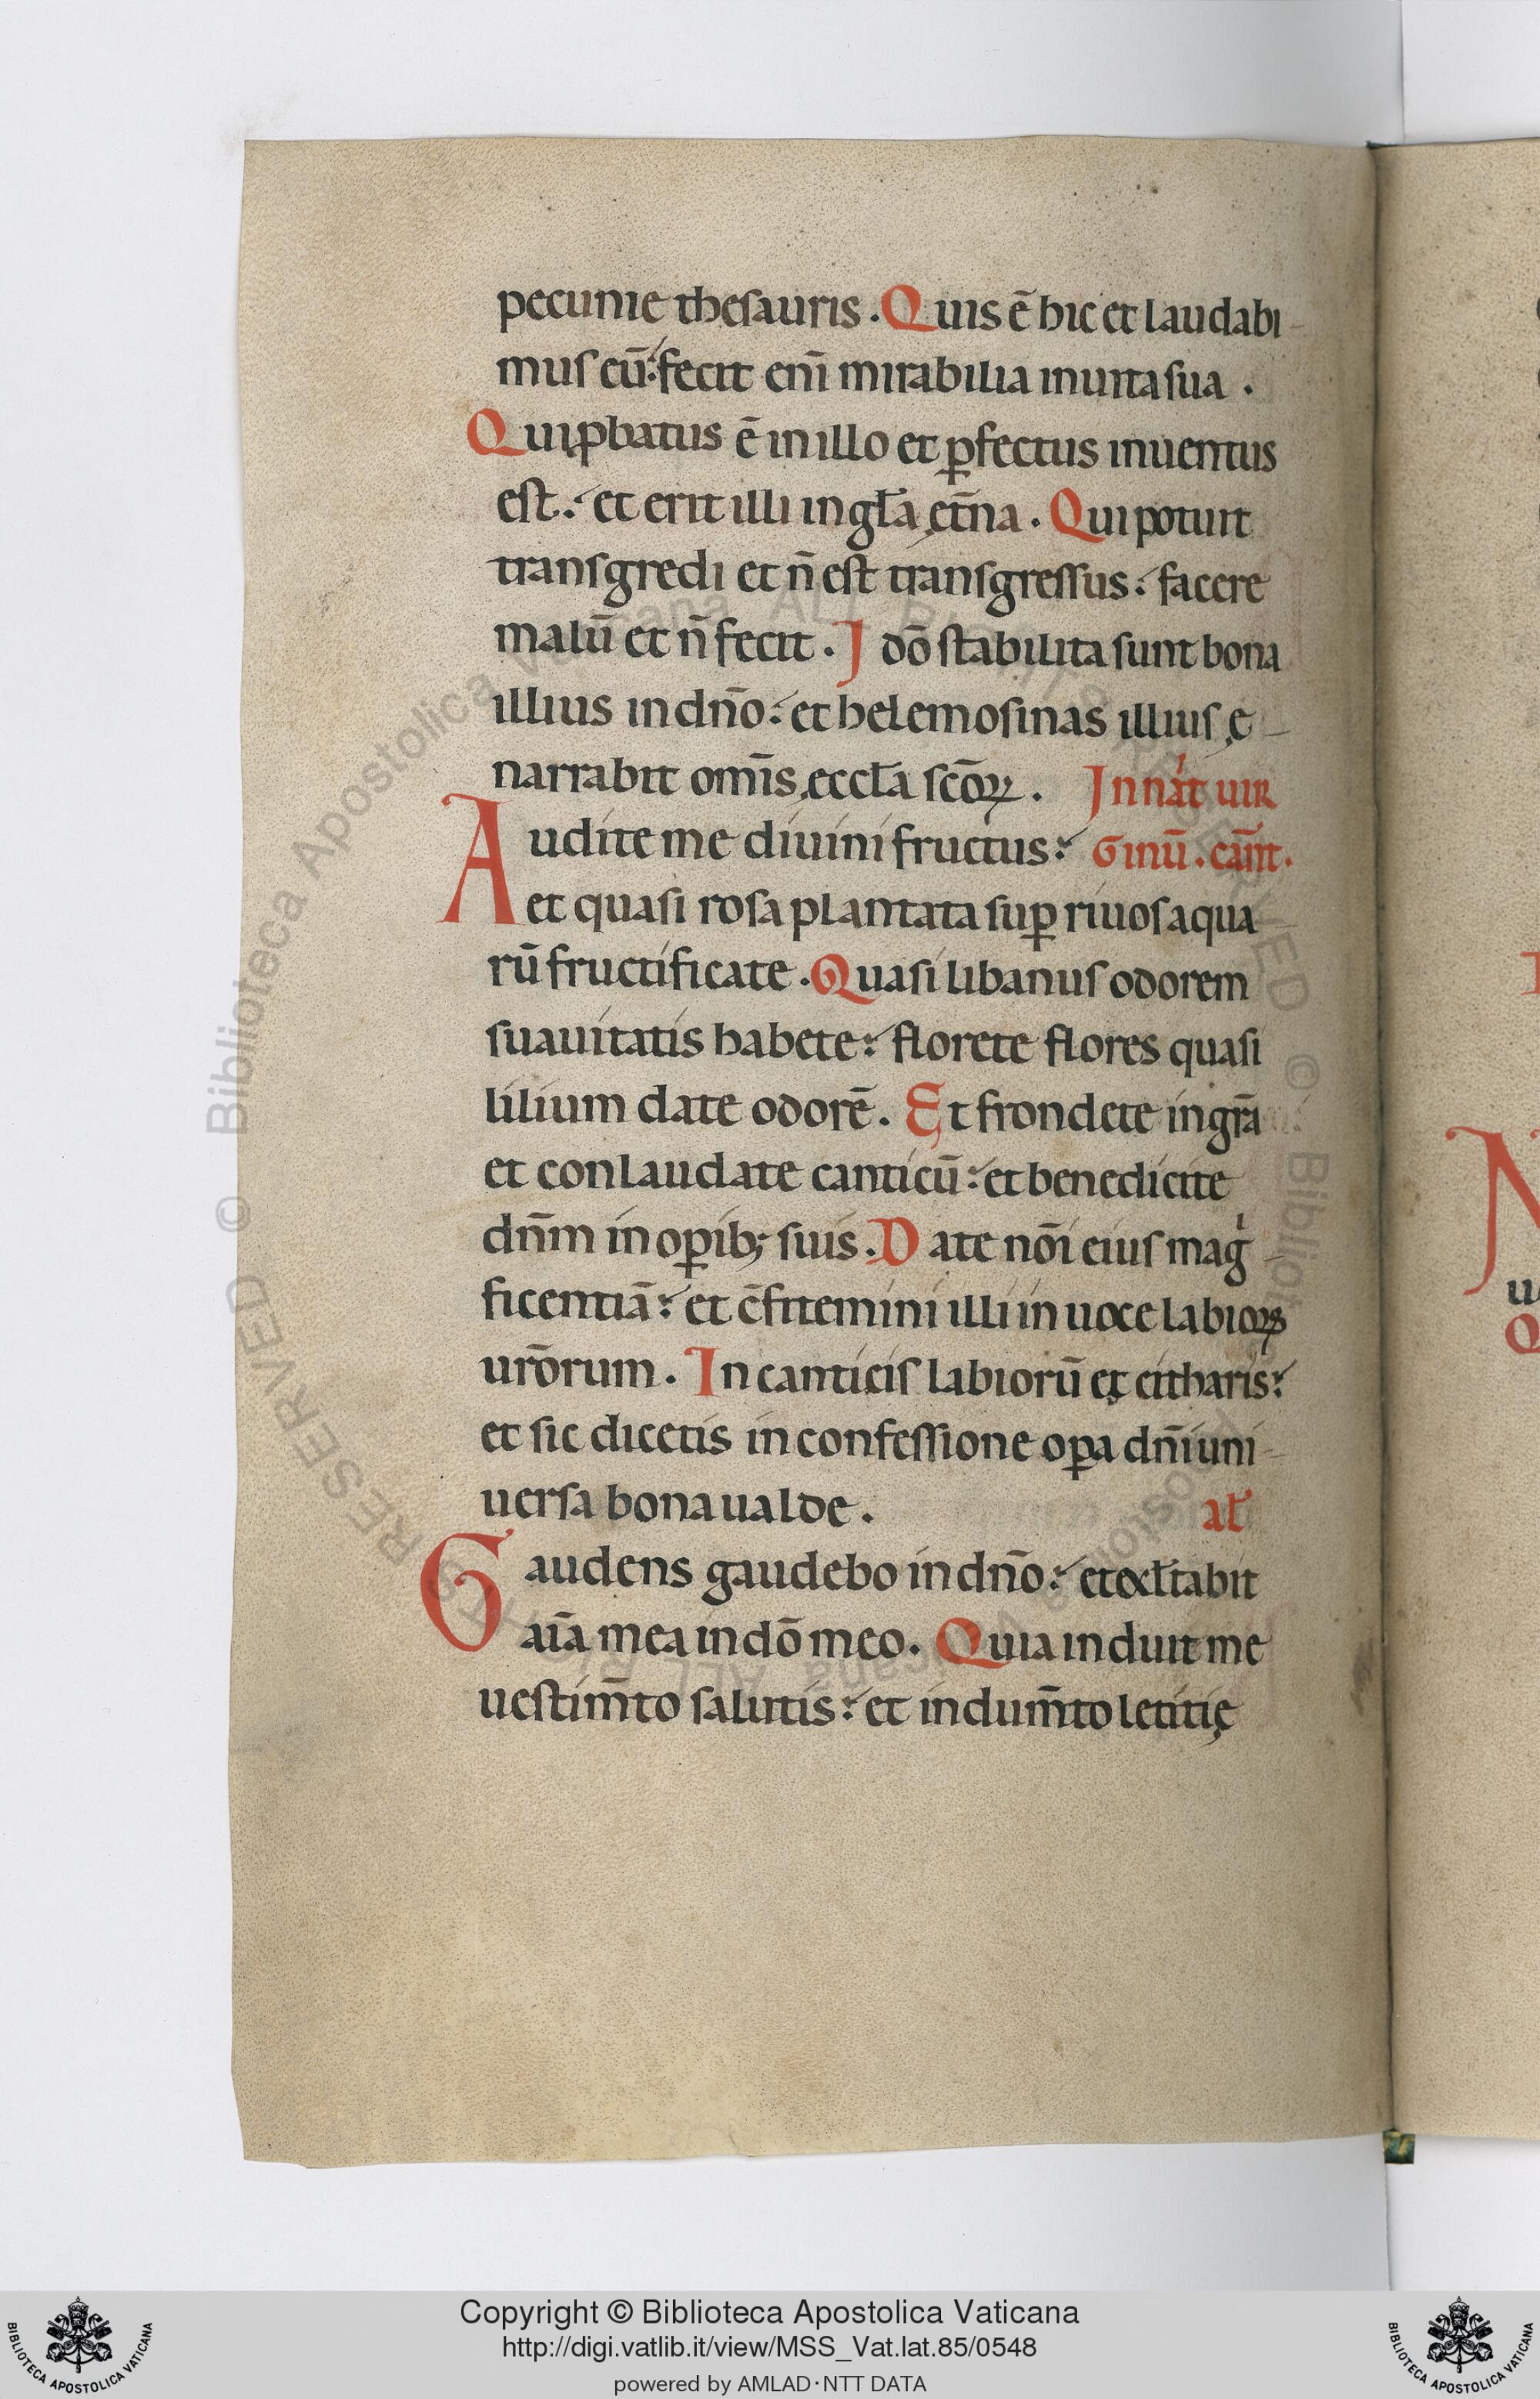 pecunie thesauris. Quis ē hic et laudabi-
mus eū: fecit eni̅ mirabilia inuita sua.
Qui ꝓbatus ē in illo et ꝑfectus inuentus
est: et erit illi in gła ęt̅na. Qui potuit
transgredi et n̅ est transgressus: facere
malū et n̅ fecit. Ideō stabilita sunt bona
illius in dn̅o: et helemosinas illius ę-
narrabit omi̅s ęccła scōꝝ. In nat́ uir
Audite me diuini fructus: ginū. cānt.
et quasi rosa plantata suꝑ riuos aqua-
rū fructificate. Quasi libanus odorem
suauitatis habete: florete flores quasi
lilium date odorē. Et frondete in gr̅a
et conlaudate canticū: et benedicite
dn̅m in oꝑib; suis. Date nōi eius magⁱ-
ficentiā: et c̄fitemini illi in uoce labioꝝ
ur̅orum. In canticis labiorū et citharis:
et sic dicetis in confessione oꝑa dn̅i uni-
uersa bona ualde. ał
Gaudens gaudebo in dn̅o: et exłtabit
ai̅a mea in dō meo. Quia induit me
uestim̅to salutis: et indum̅to letitię
© Biblioteca Apostolica Vaticana ALL RIGHTS RESERVED © Biblioteca Apostolica Vaticana ALL RIGHTS RESERVED
Copyright © Biblioteca Apostolica Vaticana
http://digi.vatlib.it/view/MSS_Vat.lat.85/0548
powered by AMLAD·NTT DATA
BIBLIOTECA APOSTOLICA VATICANA
BIBLIOTECA APOSTOLICA VATICANA